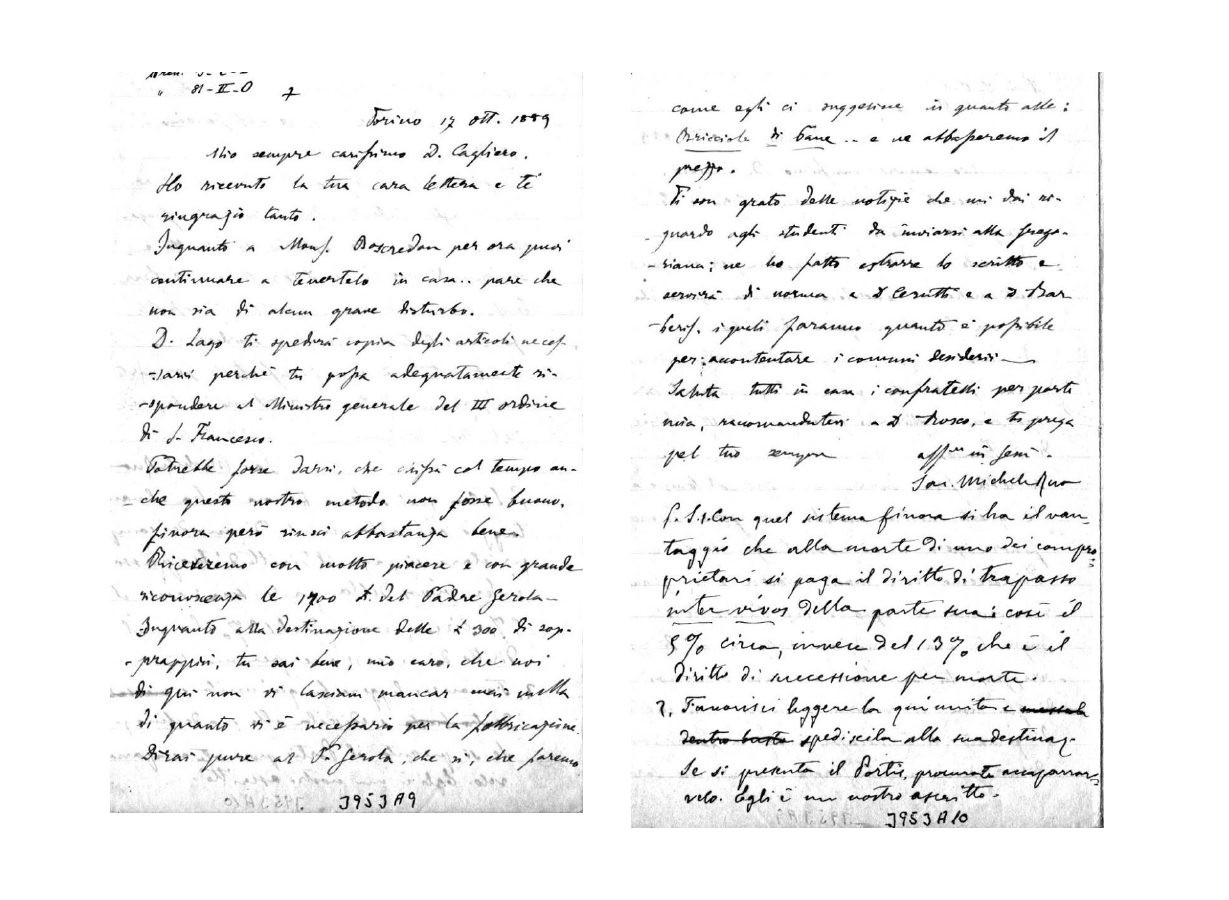 81-II-O 7
Torino 17 ott. 1889
Mio sempre carissimo D. Cagliero.
Ho ricevuto la tua cara lettera e ti
ringrazio tanto.
Inquanto a Mons. Boscredon per ora puoi
continuare a tenertelo in casa.. pare che
non sia di alcun grave disturbo.
D. Lago ti spedirà copia degli articoli neces-
-sarii perchè tu possa adeguatamente ri-
-spondere al Ministro generale del III ordine
di S. Francesco.
Potrebbe forse darsi, che chissà col tempo an-
che questo nostro metodo non fosse buono,
finora però riuscì abbastanza bene.
Riceveremo con molto piacere e con grande
riconoscenza le 1700 £. del Padre Gerola-
Inquanto alla destinazione delle £ 300 di sop-
-prappiù, tu sai bene, mio caro, che noi
di qui non vi lasciam mancar mai nulla
di quanto vi è necessario per la fabbricazione.
Dirai pure al P. Gerola, che sì, che faremo
J953A9
come egli ci suggerisce in quanto alle:
Briciole di Pane .. e ne abbasseremo il
prezzo.
Ti son grato delle notizie che mi dai ri-
-guardo agli studenti da inviarsi alla Grego-
-riana; ne ho fatto estrarre lo scritto e
servirà di norma a D Cerutti e a D Bar
-beris. i quali faranno quanto è possibile
per accontentare i comuni desiderii-
Saluta tutti in casa i confratelli per parte
mia, raccomandateci a D Bosco, e ti prega
pel tuo sempre aff.mo in Gesù.
Sac. Michele Rua
P.S. 1. Con quel sistema finora si ha il van-
taggio che alla morte di uno dei compro-
prietari si paga il diritto di trapasso
inter vivos della parte sua: così il
5% circa, invece del 13% che è il
diritto di successione per morte.
2. Favorisci leggere la qui unita e
spediscila alla sua destinaz.
Se si presenta il Portis, procurate accaparrar-
velo. Egli è un nostro ascritto.
J953A10